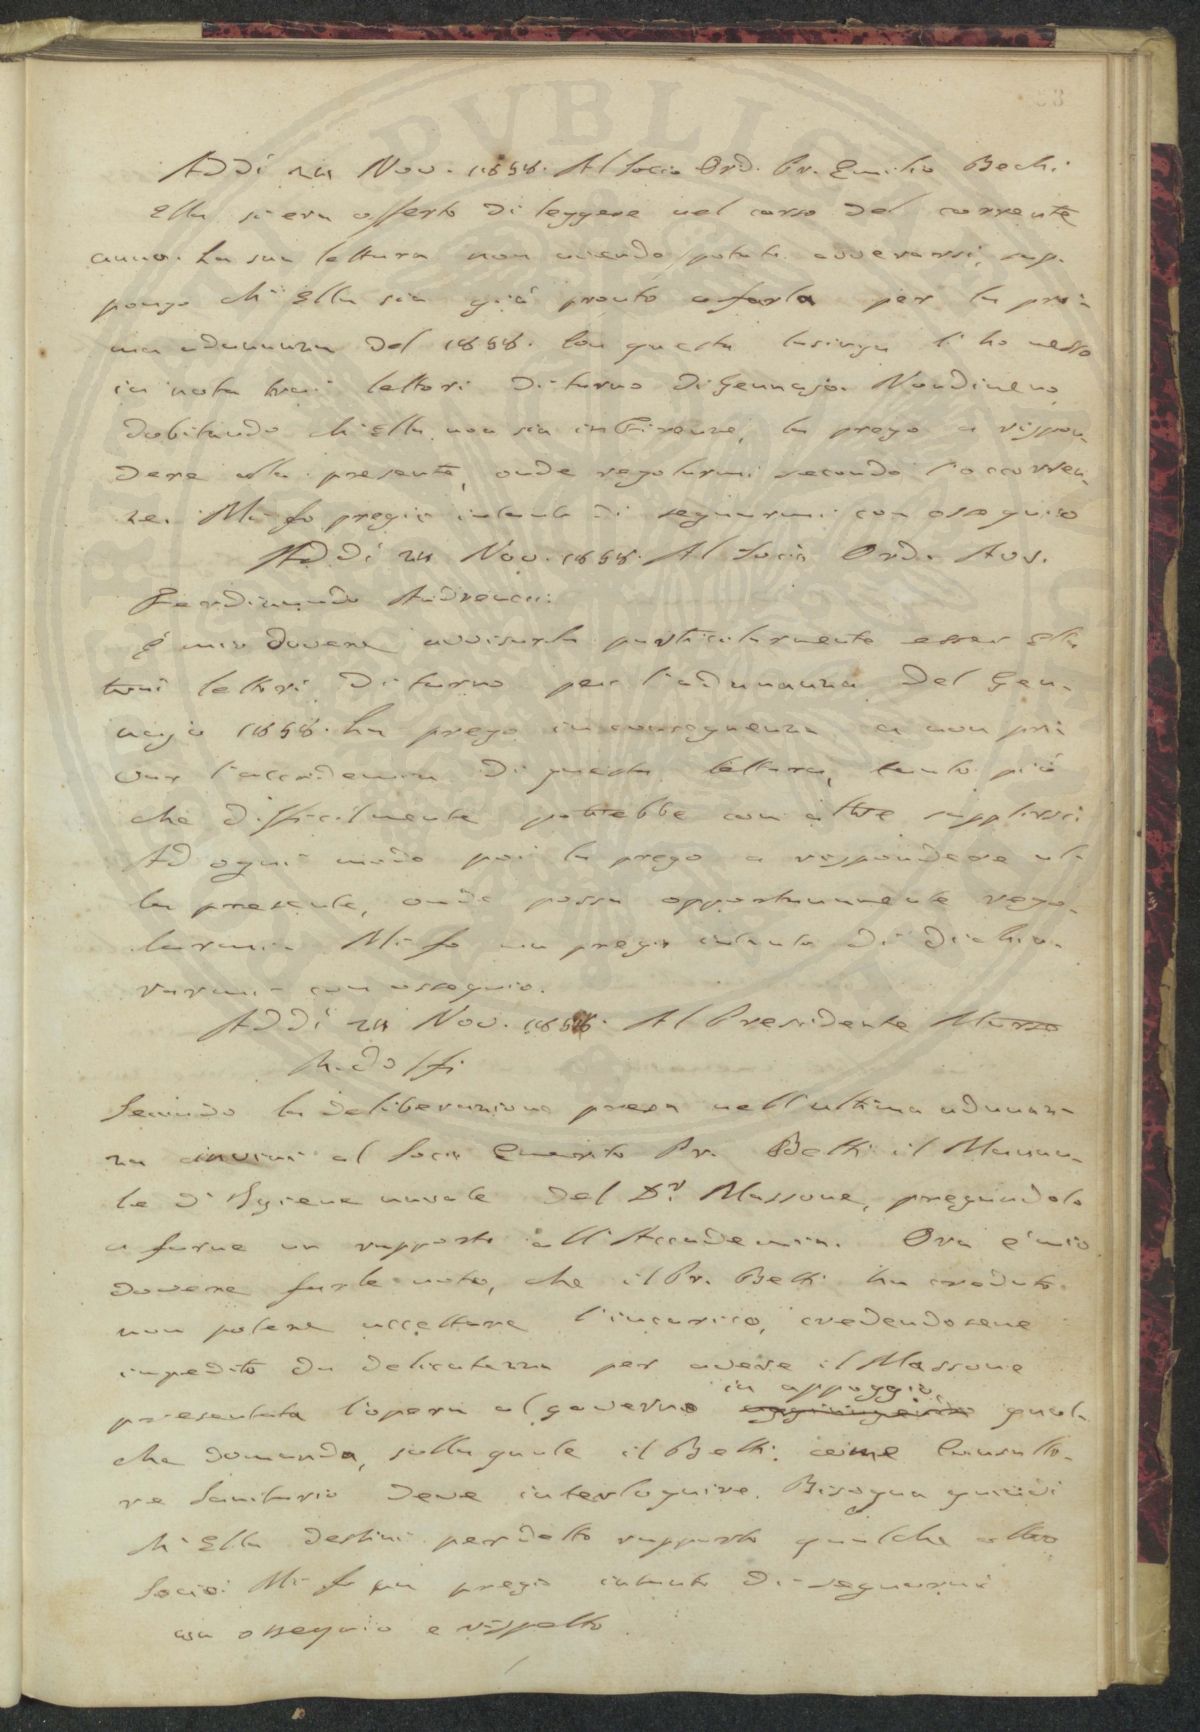 53
Addì 24 Nov. 1858. Al Socio Ord. Pr. Emilio Bechi
Ella si era offerto di leggere nel corso del corrente
anno. La sua lettura non avendo potuto avverarsi, sup-
pongo ch'Ella sia già pronto a farla per la pri-
ma adunanza del 1858. Con questa lusinga l'ho messo
in nota trai lettori di turno di Gennajo. Nondimeno
dubitando ch'Ella non sia in Firenze, la prego a rispon-
dere alla presente, onde regolarmi secondo l'occorren-
ze. Mi fo pregio intanto di segnarmi con ossequio
Addì 24 Nov. 1858. Al Socio Ord. Avv.
Ferdinando Andreucci
È mio dovere avvisarla particolarmente esser Ella
trai lettori di turno per l'adunanza del Gen-
najo 1858. La prego in conseguenza a non pri
var l'accademia di questa lettura, tanto più
che difficilmente potrebbe con altre supplirsi
Ad ogni modo poi la prego a rispondere al-
la presente, onde possa opportunamente rego-
larmi. Mi fo un pregio intanto di dichia-
rarmi con ossequio.
Addì 24 Nov. 1858. Al Presidente
Ridolfi
Secondo la deliberazione presa nell'ultima adunan-
za inviai al Socio Emerito Pr. Betti il Manua-
le d'Igiene navale del Dr. Massone, pregandolo
a farne un rapporto all'Accademia. Ora è mio
dovere farle noto, che il Pr. Betti ha creduto
non potere accettare l'incarico, credendosene
impedito da delicatezza per avere il Massone
presentata l'opera al governo in appoggio qual-
che domanda, sulla quale il Betti come Consulto-
re Sanitario deve interloquire. Bisogna quindi
ch'Ella destini per detto rapporto qualche altro
Socio. Mi fo un pregio intanto di segnarmi
con ossequio e rispetto.